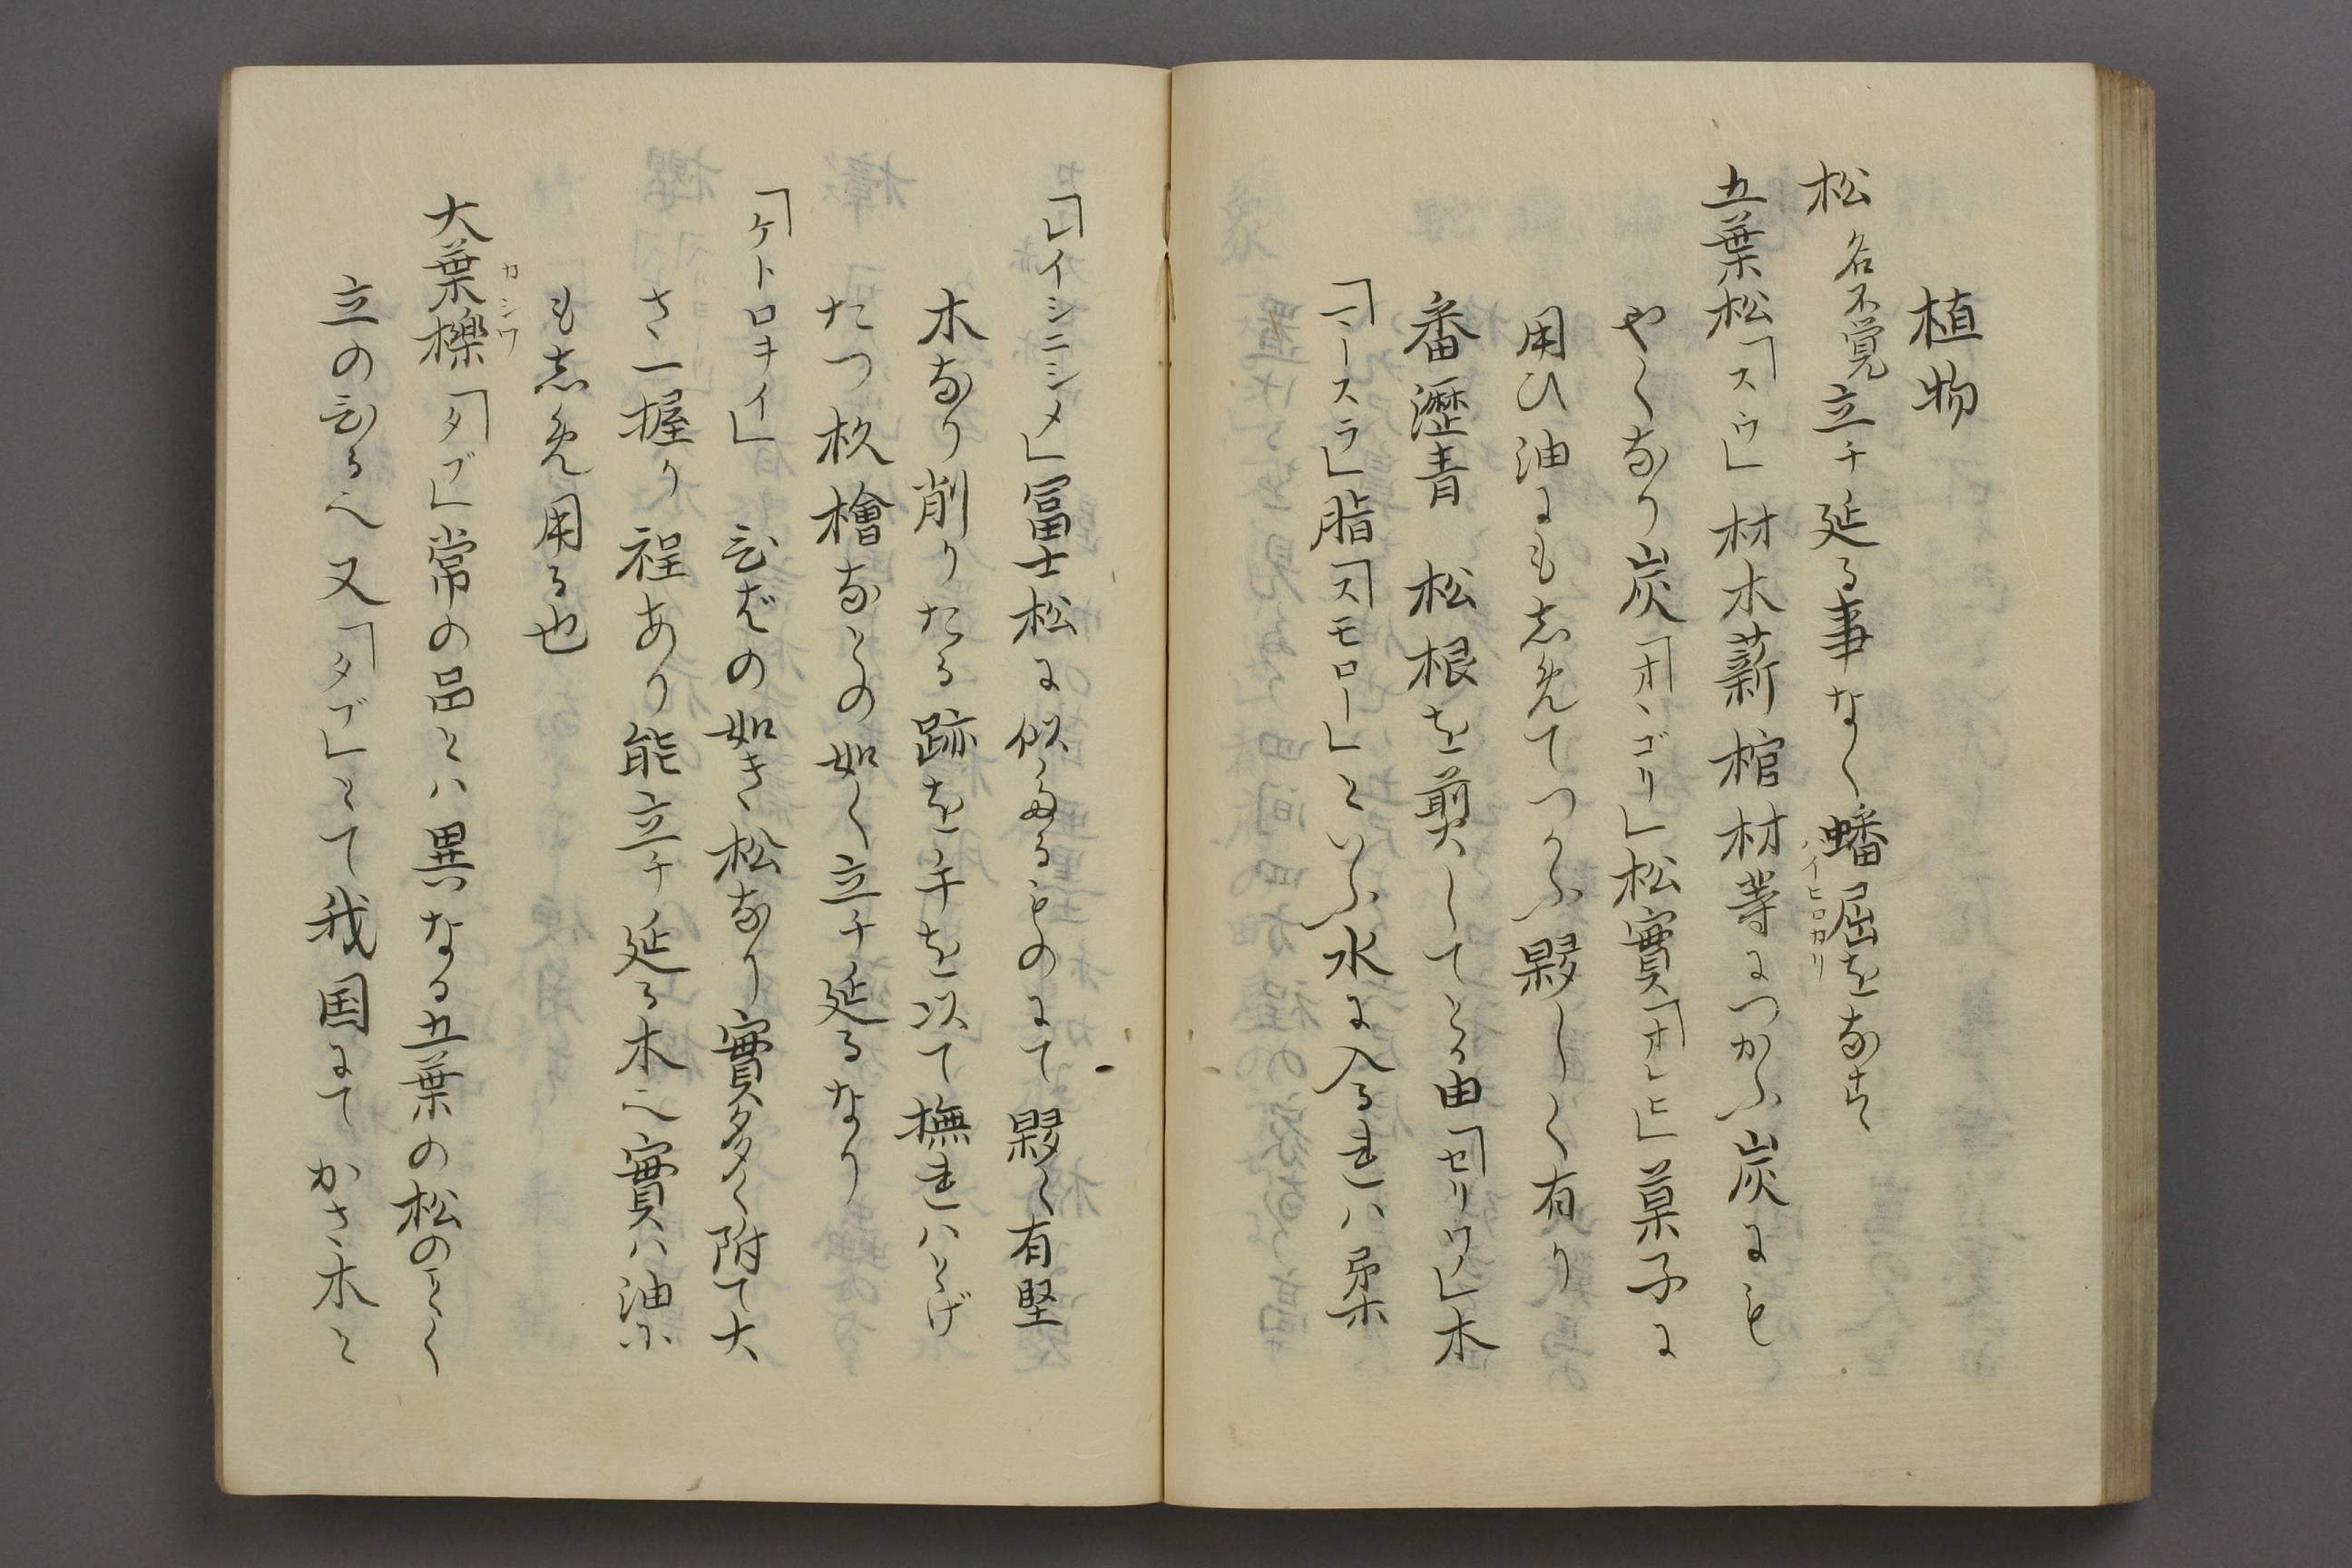 植物
松 名不覚 立チ延る事なく蟠屈をなす
ハイヒロカリ
五葉松「スウ」材木薪棺材等につかふ炭にも
やくなり炭「オヽゴリ」松實「オレヒ」菓子に
用ひ油にも志免てつかふ夥しく有り
番瀝青 松根を剪してとる由「セリワ」木
「マースラ」脂「スモロー」といふ水に入るれハ柔
「レイシニシメ」冨士松に似たるものにて夥く有堅
木なり削りたる跡を手を以て撫れハとげ
たつ杉檜なとの如く立チ延るなり
「ケトロキイ」
の如き松なり實多く附て大
さ一握り程あり能立チ延る木也實ハ油に
も志免用る也
大葉櫟「タブ」常の品とハ異なる五葉の松のことく
カシワ
立の
也又「タブ」とて我国にてかさ木と